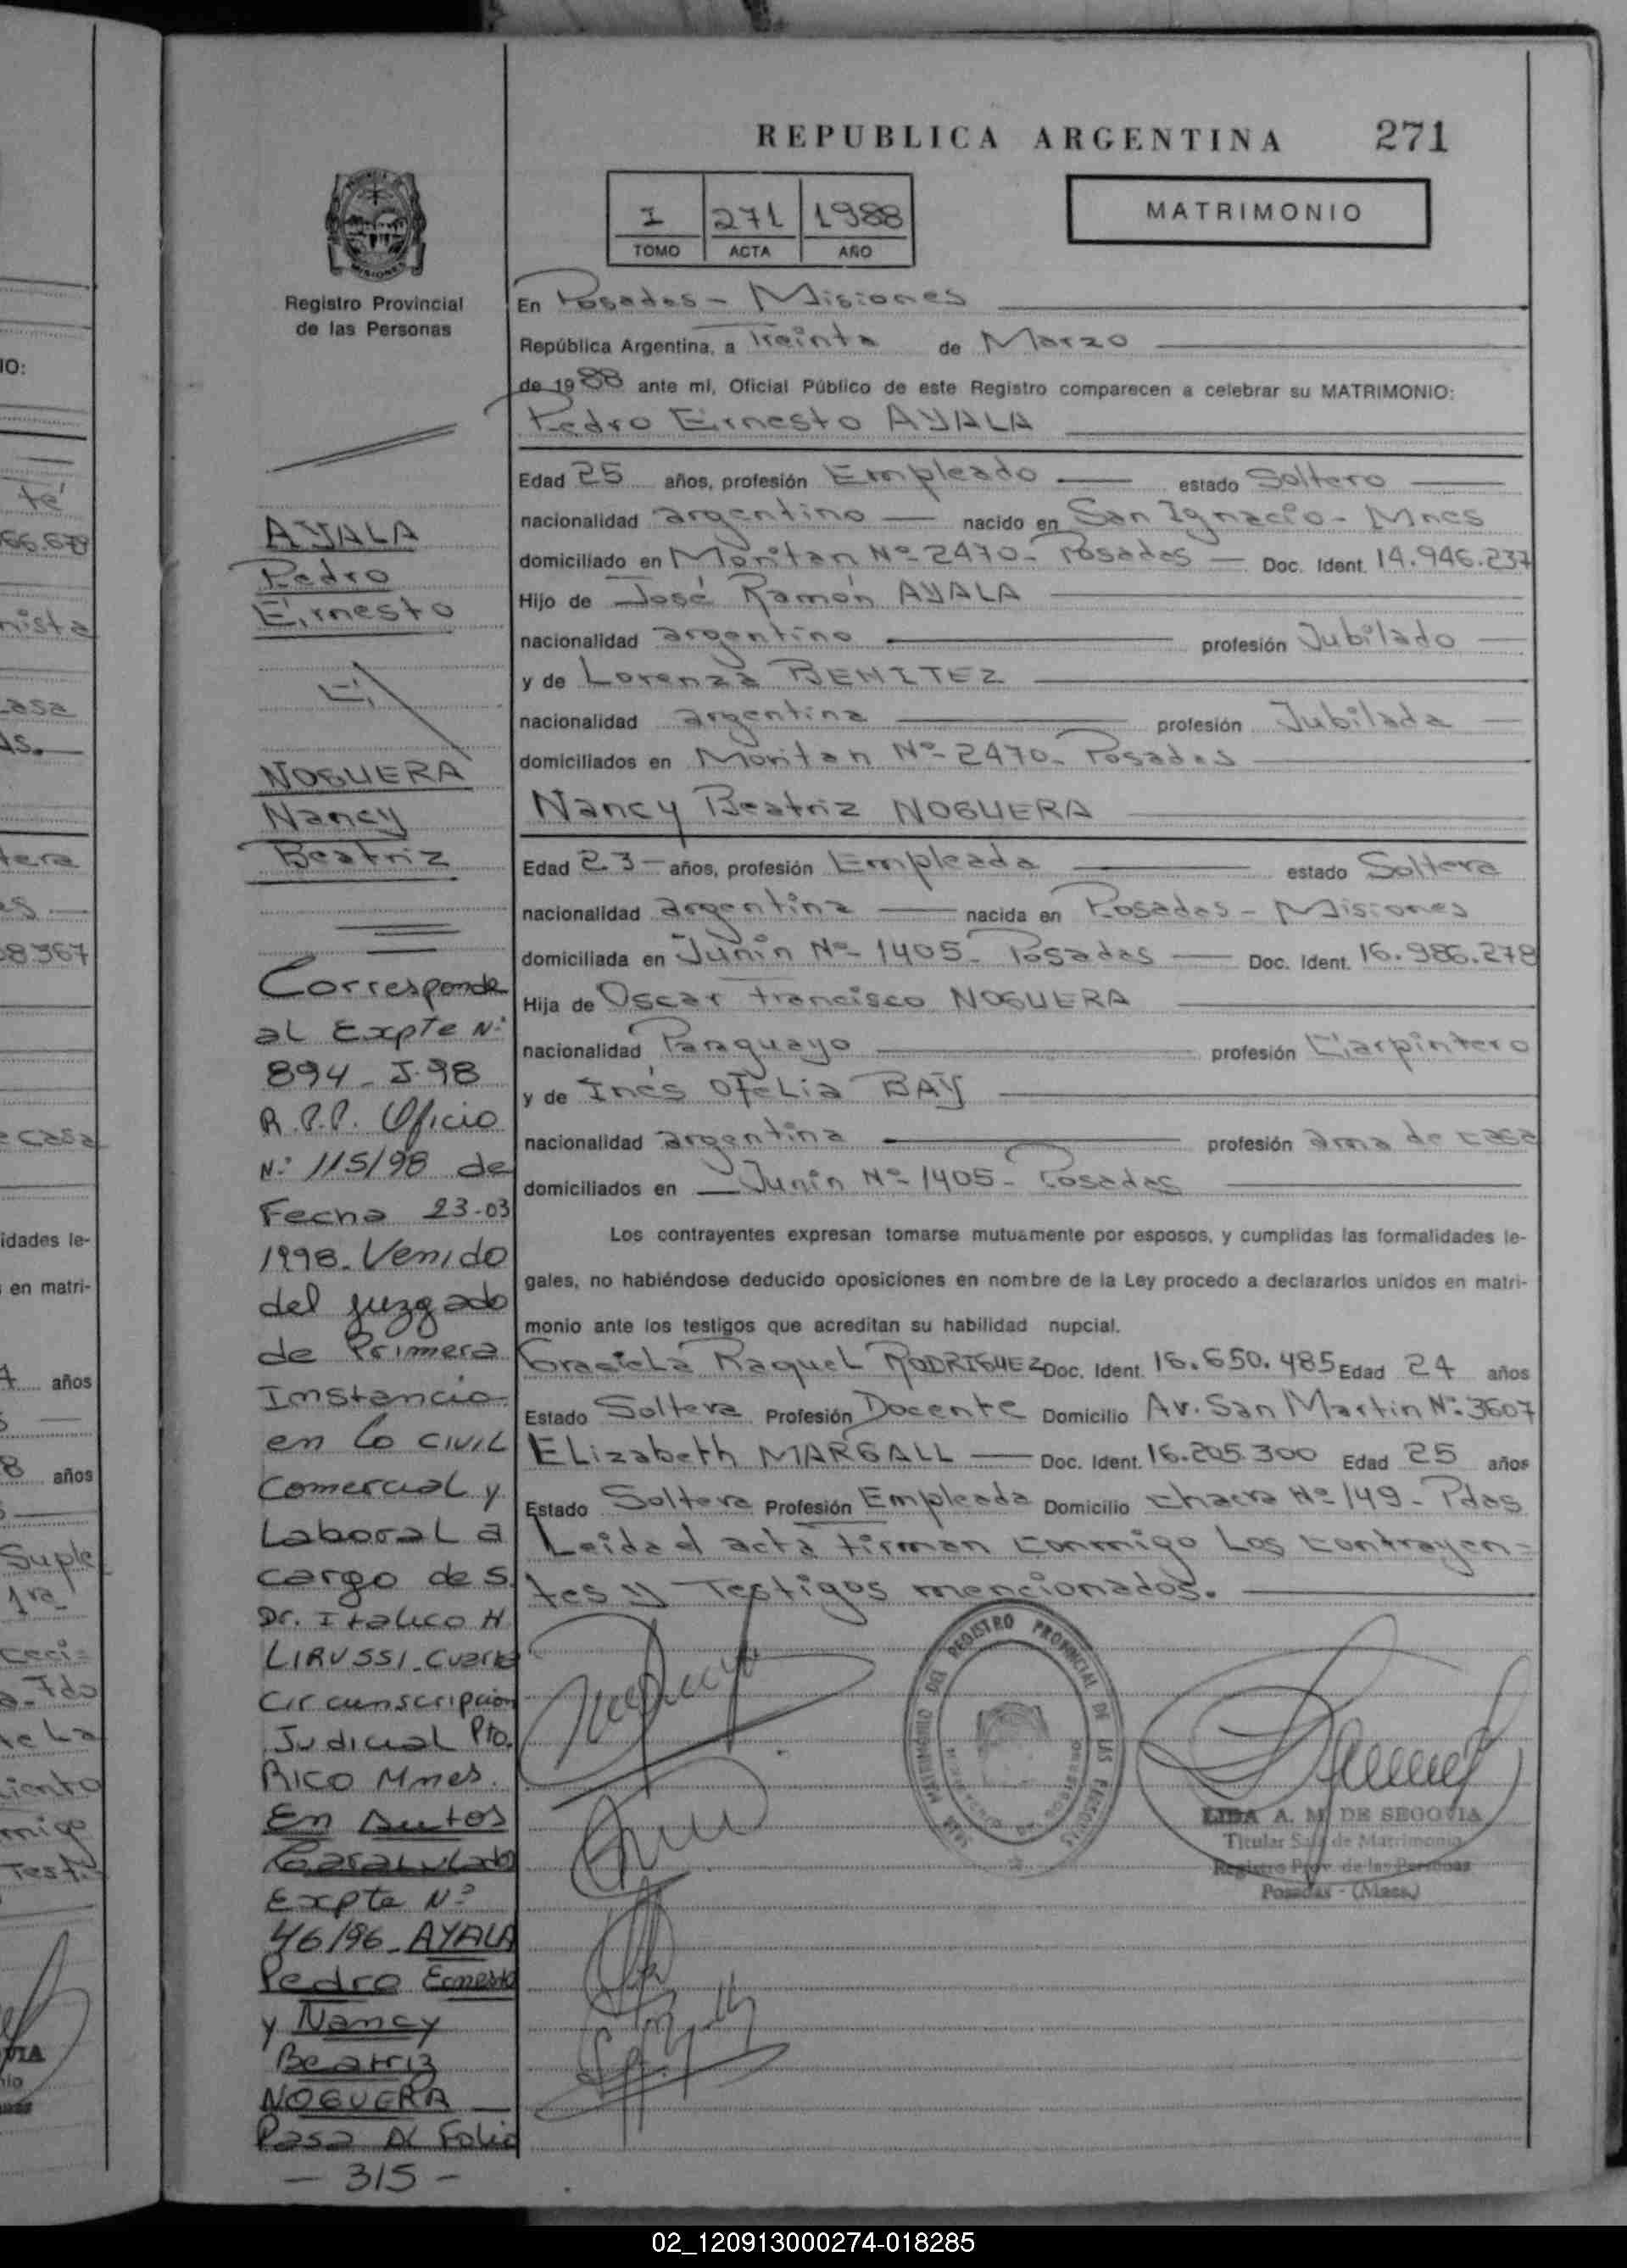 REPUBLICA ARGENTINA 271
I 271 1988
TOMO ACTA AÑO
MATRIMONIO
Registro Provincial
de las Personas
En Posadas - Misiones
República Argentina, a Treinta de Marzo
de 1988 ante mí, Oficial Público de este Registro comparecen a celebrar su MATRIMONIO:
Pedro Ernesto AYALA
Edad 25 años, profesión Empleado estado Soltero
nacionalidad argentino nacido en San Ignacio - Mnes
domiciliado en Moritan Nº 2470 - Posadas Doc. Ident. 14.946.237
Hijo de José Ramón AYALA
nacionalidad argentino profesión Jubilado
y de Lorenza BENITEZ
nacionalidad argentina profesión Jubilada
domiciliados en Moritan Nº 2470 - Posadas
Nancy Beatriz NOGUERA
Edad 23 años, profesión Empleada estado Soltera
nacionalidad argentina nacida en Posadas - Misiones
domiciliada en Junin Nº 1405 - Posadas Doc. Ident. 16.986.278
Hija de Oscar Francisco NOGUERA
nacionalidad Paraguayo profesión Carpintero
y de Inés OFeLia BAY
nacionalidad argentina profesión ama de casa
domiciliados en Junin Nº 1405 - Posadas
Los contrayentes expresan tomarse mutuamente por esposos, y cumplidas las formalidades le-
gales, no habiéndose deducido oposiciones en nombre de la Ley procedo a declararlos unidos en matri-
monio ante los testigos que acreditan su habilidad nupcial.
Graciela Raquel RODRIGUEZ Doc. Ident. 16.650.485 Edad 24 años
Estado Soltera Profesión Docente Domicilio Av. San Martin Nº 3607
ELizabeth MARGALL Doc. Ident. 16.205.300 Edad 25 años
Estado Soltera Profesión Empleada Domicilio chacra Nº 149 - Pdas
Leida el acta firman conmigo Los contrayen=
tes y Testigos mencionados.
AYALA
Pedro
Ernesto
NOGUERA
Nancy
Beatriz
Corresponde
al Expte Nº
894 - J-98
R.P.P. Oficio
Nº 115/98 de
Fecha 23-03
1998. Venido
del juzgado
de Primera
Instancia
en Lo CIVIL
Comercial y
Laboral a
cargo de S.
Dr. Italico H
LIRUSSI - Cuarta
Circunscripcion
Judicial Pto.
Rico Mnes.
En Autos
Caratulado
Expte Nº
46/96 - AYALA
Pedro Ernesto
y Nancy
Beatriz
NOGUERA
Pasa Al Folio
- 315 -
LIDA A. M. DE SEGOVIA
Titular Sala de Matrimonio
Registro Prov. de las Personas
Posadas - (Mnes.)
02_120913000274-018285